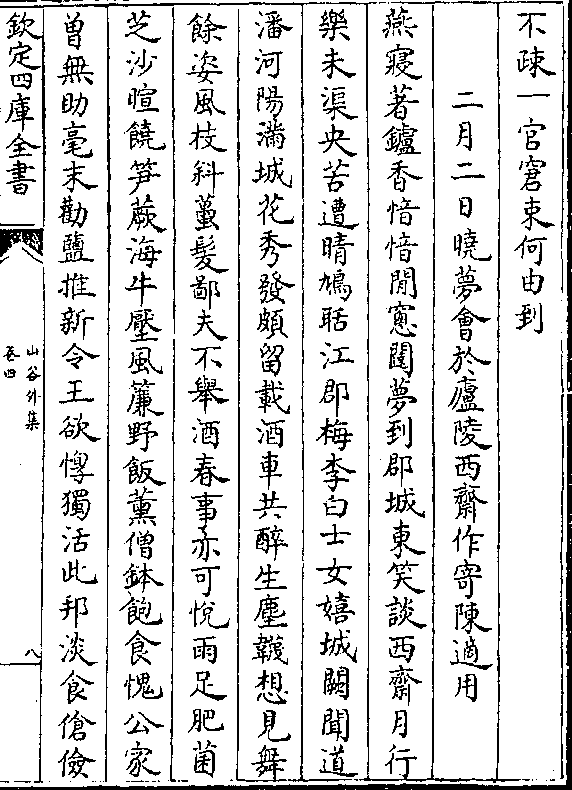 不疎一官窘束何由到
二月二日曉夢會於廬陵西齋作寄陳適用
燕寢著鑪香愔愔閒窻闥夢到郡城東笑談西齋月行
樂未渠央苦遭晴鳩聒江郡梅李白士女嬉城闕聞道
潘河陽滿城花秀發頗留載酒車共醉生塵韈想見舞
餘姿風枝斜蠆髮鄙夫不舉酒春事亦可悅雨足肥菌
芝沙暄饒笋蕨海牛壓風簾野飯薰僧鉢飽食愧公家
曽無助毫末勸鹽推新令王欲惸獨活此邦淡食傖儉
欽定四庫全書
山谷外集
卷四
八